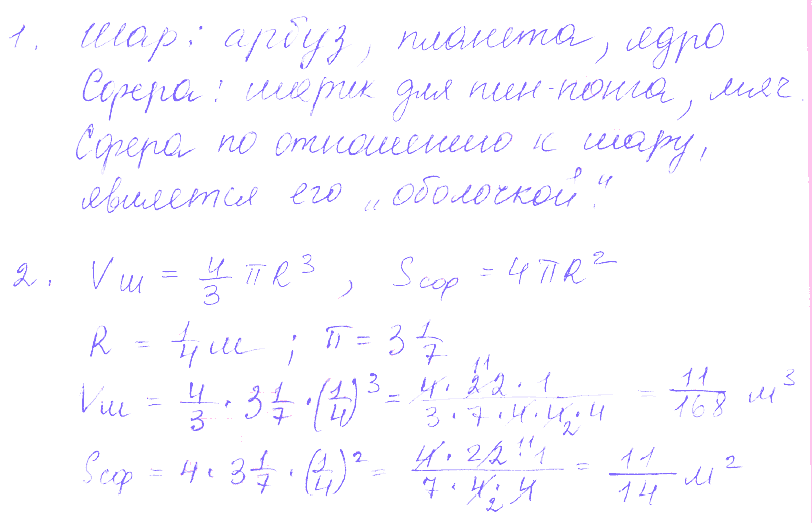 1. Шар: арбуз, планета, ядро
Сфера: шарик для пин-понга, мяч.
Сфера по отношению к шару,
является его „оболочкой".
2. Vш = 4/3 πR³, Sсф = 4πR²
R = 1/4 м; π = 3 1/7
Vш = 4/3 · 3 1/7 · (1/4)³ = 4 · 22 11 · 1 / 3 · 7 · 4 · 4 2 · 4 = 11/168 м³
Sсф = 4 · 3 1/7 · (1/4)² = 4 · 22 11 · 1 / 7 · 4 2 · 4 = 11/14 м²